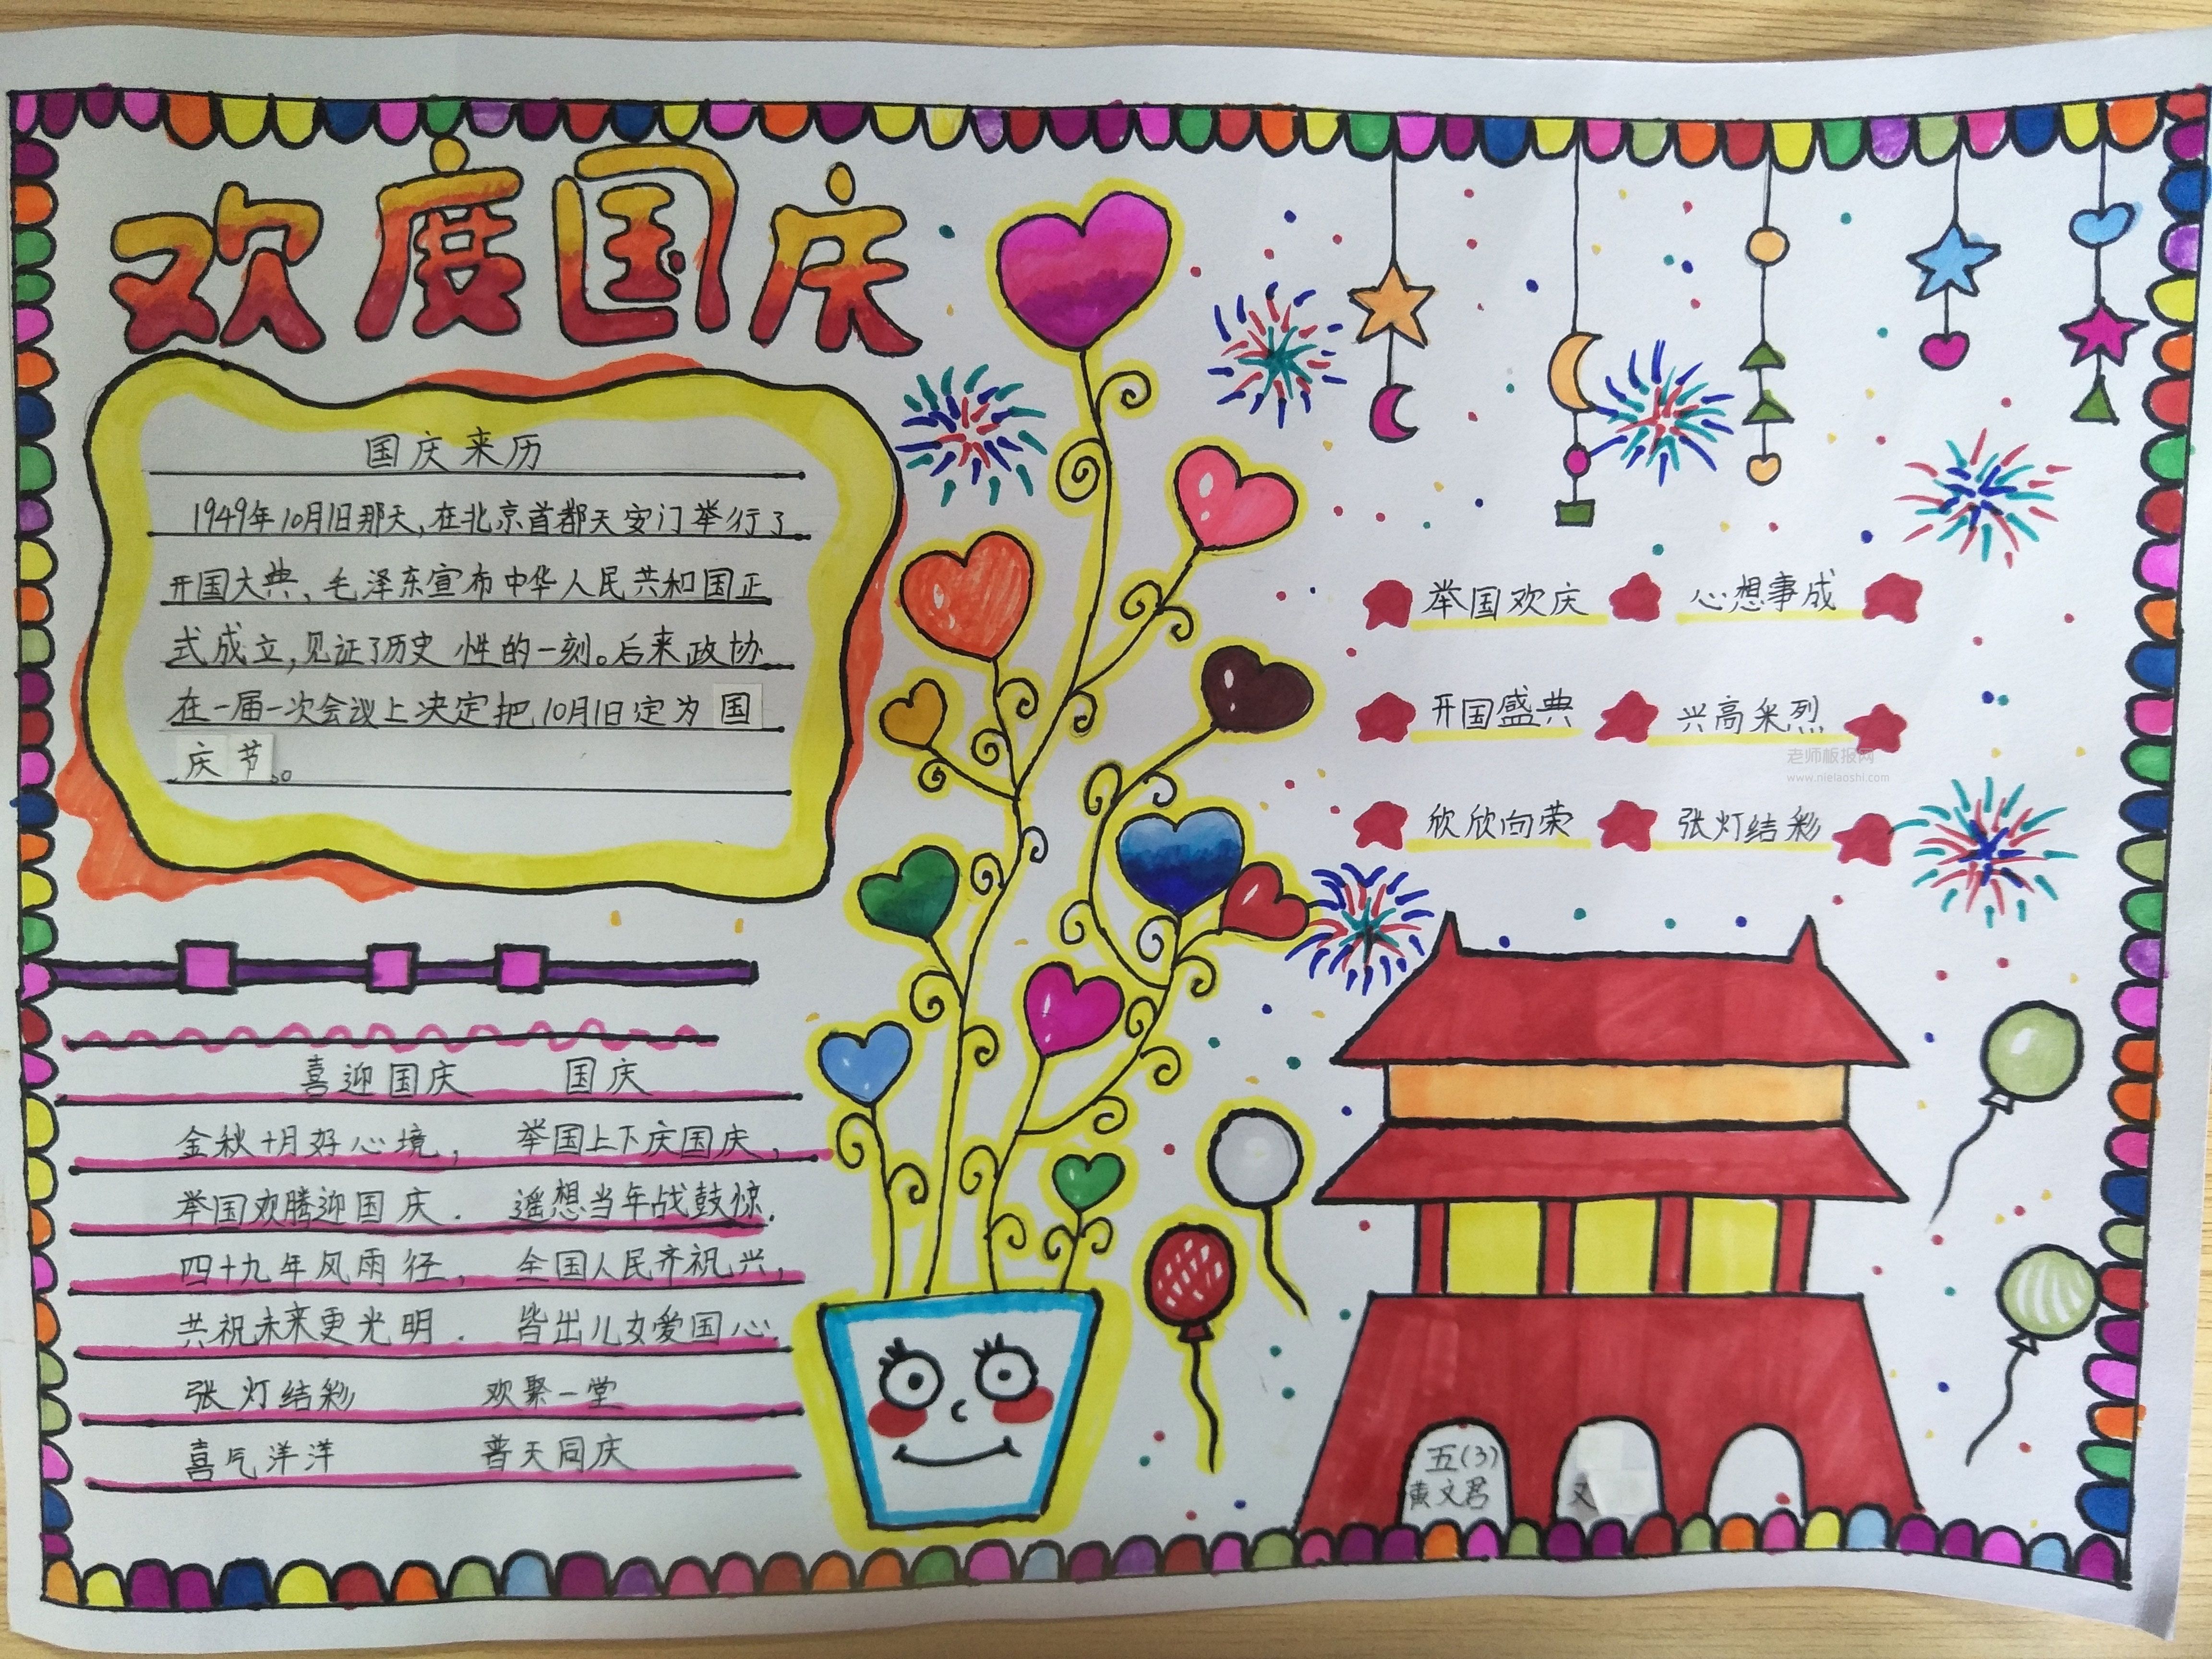 欢度国庆
国庆来历
1949年10月1日那天,在北京首都天安门举行了
开国大典、毛泽东宣布中华人民共和国正
式成立,见证了历史性的一刻。后来政协
在一届一次会议上决定把10月1日定为国
庆节。
喜迎国庆 国庆
金秋十月好心境, 举国上下庆国庆,
举国欢腾迎国庆. 遥想当年战鼓惊.
四十九年风雨径, 全国人民齐祝兴,
共祝未来更光明. 皆出儿女爱国心.
张灯结彩 欢聚一堂
喜气洋洋 普天同庆
举国欢庆 心想事成
开国盛典 兴高采烈
老师板报网
www.nielaoshi.com
欣欣向荣 张灯结彩
五(3)
黄文君